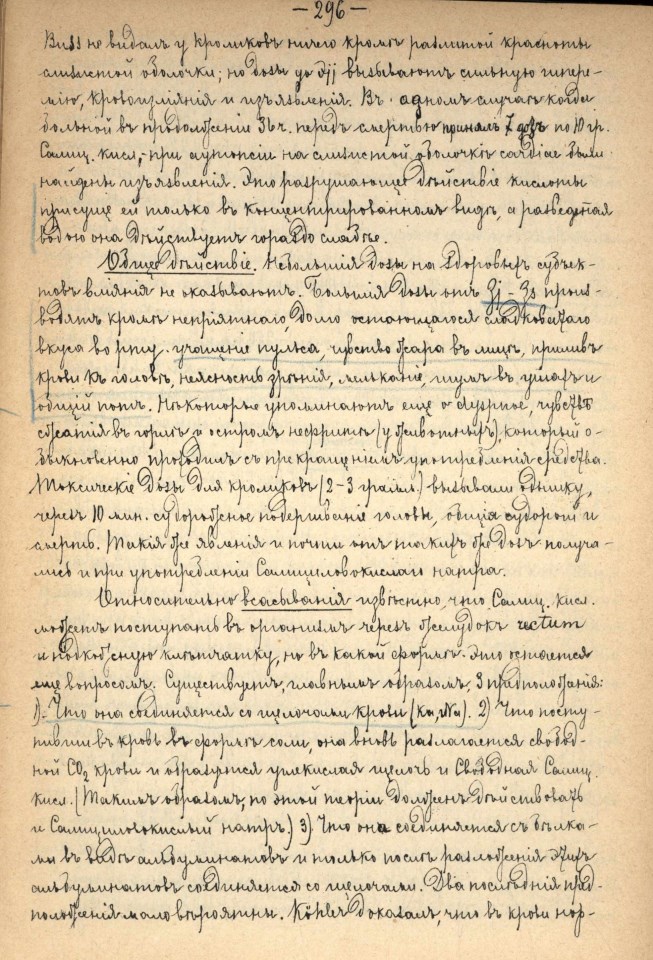 — 296 —
Buss не видалъ у кроликовъ ничего кромѣ разлитой красноты
слизистой оболочки; но дозы до Ʒij вызываютъ сильную гипере-
мію, кровоизліянія и изъязвленія. Въ одномъ случаѣ когда
больной въ продолженіи 36 ч. передъ смертью принялъ 7 дозъ по 10 гр.
Салиц. кисл., при аутопсіи на слизистой оболочкѣ cardiae были
найдены изъязвленія. Это разрушающее дѣйствіе кислоты
присуще ей только въ концентрированномъ видѣ, а разведенная
водою она дѣйствуетъ гораздо слабѣе.
Общее дѣйствіе. Небольшія дозы на здоровыхъ субъек-
товъ вліянія не оказываютъ. Большія дозы отъ Ʒj – Ʒs произ-
водятъ кромѣ непріятнаго, долго остающагося сладковатаго
вкуса во рту: учащеніе пульса, чувство жара въ лицѣ, приливъ
крови къ головѣ, неясность зрѣнія, мельканіе, шумъ въ ушахъ и
общій потъ. Нѣкоторые упоминаютъ еще о dyspnoe, чувствѣ
сжатія въ горлѣ и остромъ нефритѣ (у животныхъ), который о-
быкновенно проходилъ съ прекращеніемъ употребленія средства.
Токсическіе дозы для кроликовъ (2–3 грамм.) вызывали одышку,
черезъ 10 мин. судорожное подергиваніе головы, общія судороги и
смерть. Такія же явленія и почти отъ такихъ же дозъ получа-
лись и при употребленіи Салициловокислаго натра.
Относительно всасыванія извѣстно, что Салиц. кисл.
можетъ поступать въ организмъ черезъ желудокъ rectum
и подкожную клѣтчатку, но въ какой формѣ. Это остается
еще вопросомъ. Существуетъ, главнымъ образомъ, 3 предположенія:
1). Что она соединяется со щелочами крови (Ka, Na). 2) Что посту-
пивши въ кровь въ формѣ соли, она вновь разлагается свобод-
ной CO₂ крови и образуются углекислая щелочь и Свободная Салиц.
кисл. (Такимъ образомъ, по этой теоріи долженъ дѣйствовать
и Салициловокислый натръ.) 3) Что она соединяется съ бѣлка-
ми въ видѣ альбуминатовъ и только послѣ разложенія этихъ
альбуминатовъ соединяется со щелочами. Два послѣднія пред-
положенія маловѣроятны. Köhler доказалъ, что въ крови нор-